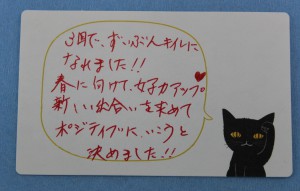 3回で、ずいぶんキレイに
なれました!!
春に向けて、女子力アップ
新しい出合いを求めて
ポジティブに、いこうと
決めました!!